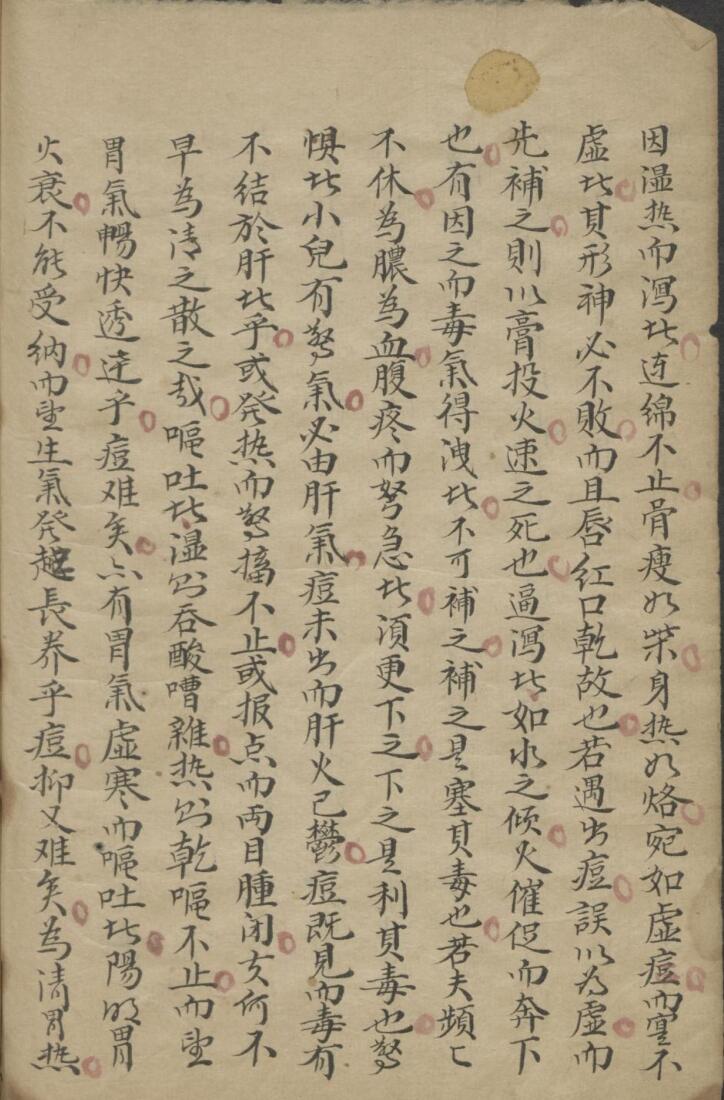 因湿热而瀉者连綿不止骨瘦如柴身热如烙宛如虚痘而實不
虚者其形神必不敗而且唇红口乾故也若遇出痘誤以为虚而
先補之則以膏投火速之死也逼瀉者如水之倾火催促而奔下
也有因之而毒氣得洩者不可補之補之是塞其毒也若夫頻〻
不休為膿為血腹疼而努急者須更下之下之是利其毒也驚
惧者小兒有驚氣必由肝氣痘未出而肝火已鬱痘既見而毒有
不结於肝者乎或発热而驚搐不止或报点而両目腫闭支何不
早為清之散之哉嘔吐者湿則吞酸嘈雜热則乾嘔不止而望
胃氣暢快透达乎痘难矣亦有胃氣虚寒而嘔吐者陽明胃
火衰不能受纳而望生氣発越長养乎痘抑又难矣為清胃热